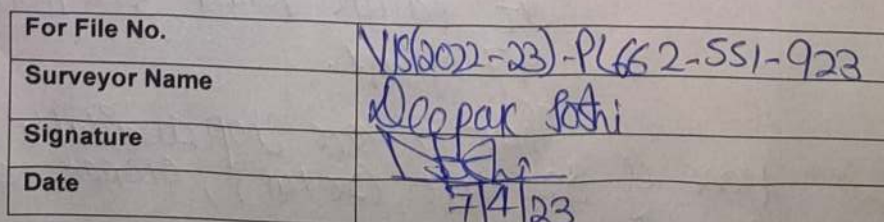 For File No. VIS(2022-23)-PL662-551-923
Surveyor Name Deepak Joshi
Signature
Date 7/4/23